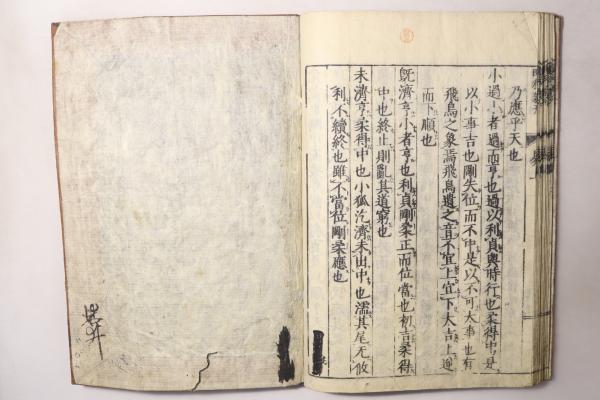 乃應乎天也
小過小者過而亨也過以利貞與時行也柔得中是
以小事吉也剛失位而不中是以不可大事也有
飛鳥之象焉飛鳥遺之音不宜上宜下大吉上逆
而下順也
既濟亨小者亨也利貞剛柔正而位當也初吉柔得
中也終止則亂其道窮也
未濟亨柔得中也小狐汔濟未出中也濡其尾无攸
利不續終也雖不當位剛柔應也